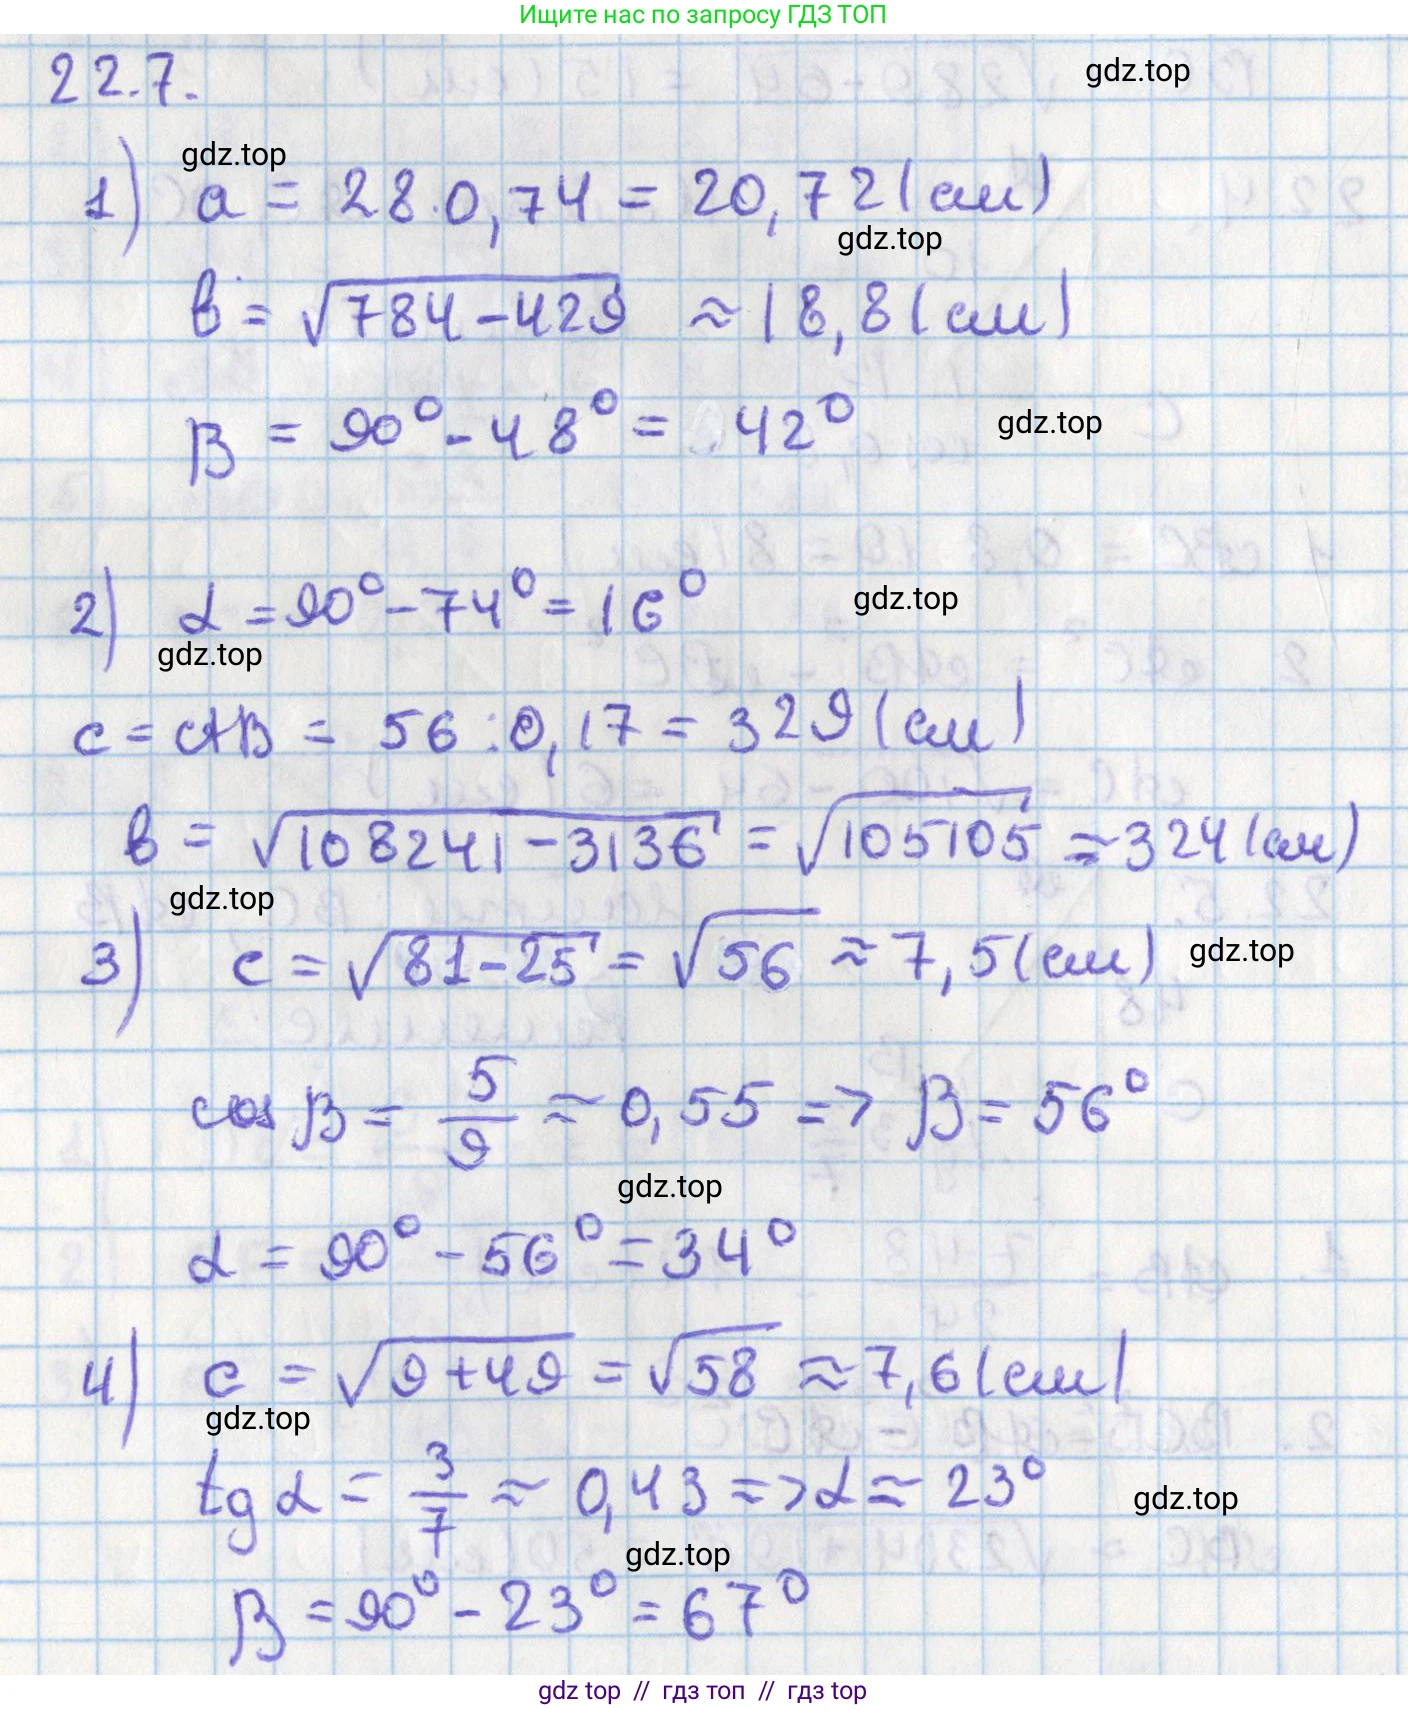 Ищите нас по запросу ГДЗ ТОП
22.7.
gdz.top
gdz.top
1) a = 28·0,74 = 20,72 (см)
gdz.top
b = √784-429 ≈ 18,8 (см)
β = 90° - 48° = 42°
gdz.top
2) α = 90° - 74° = 16°
gdz.top
gdz.top
c = AB = 56 : 0,17 = 329 (см)
b = √108241-3136 = √105105 ≈ 324 (см)
gdz.top
3) c = √81-25 = √56 ≈ 7,5 (см)
gdz.top
cos β = 5/9 ≈ 0,55 => β = 56°
gdz.top
α = 90° - 56° = 34°
4) c = √9+49 = √58 ≈ 7,6 (см)
gdz.top
tg α = 3/7 ≈ 0,43 => α ≈ 23°
gdz.top
gdz.top
β = 90° - 23° = 67°
gdz top // гдз топ // гдз top